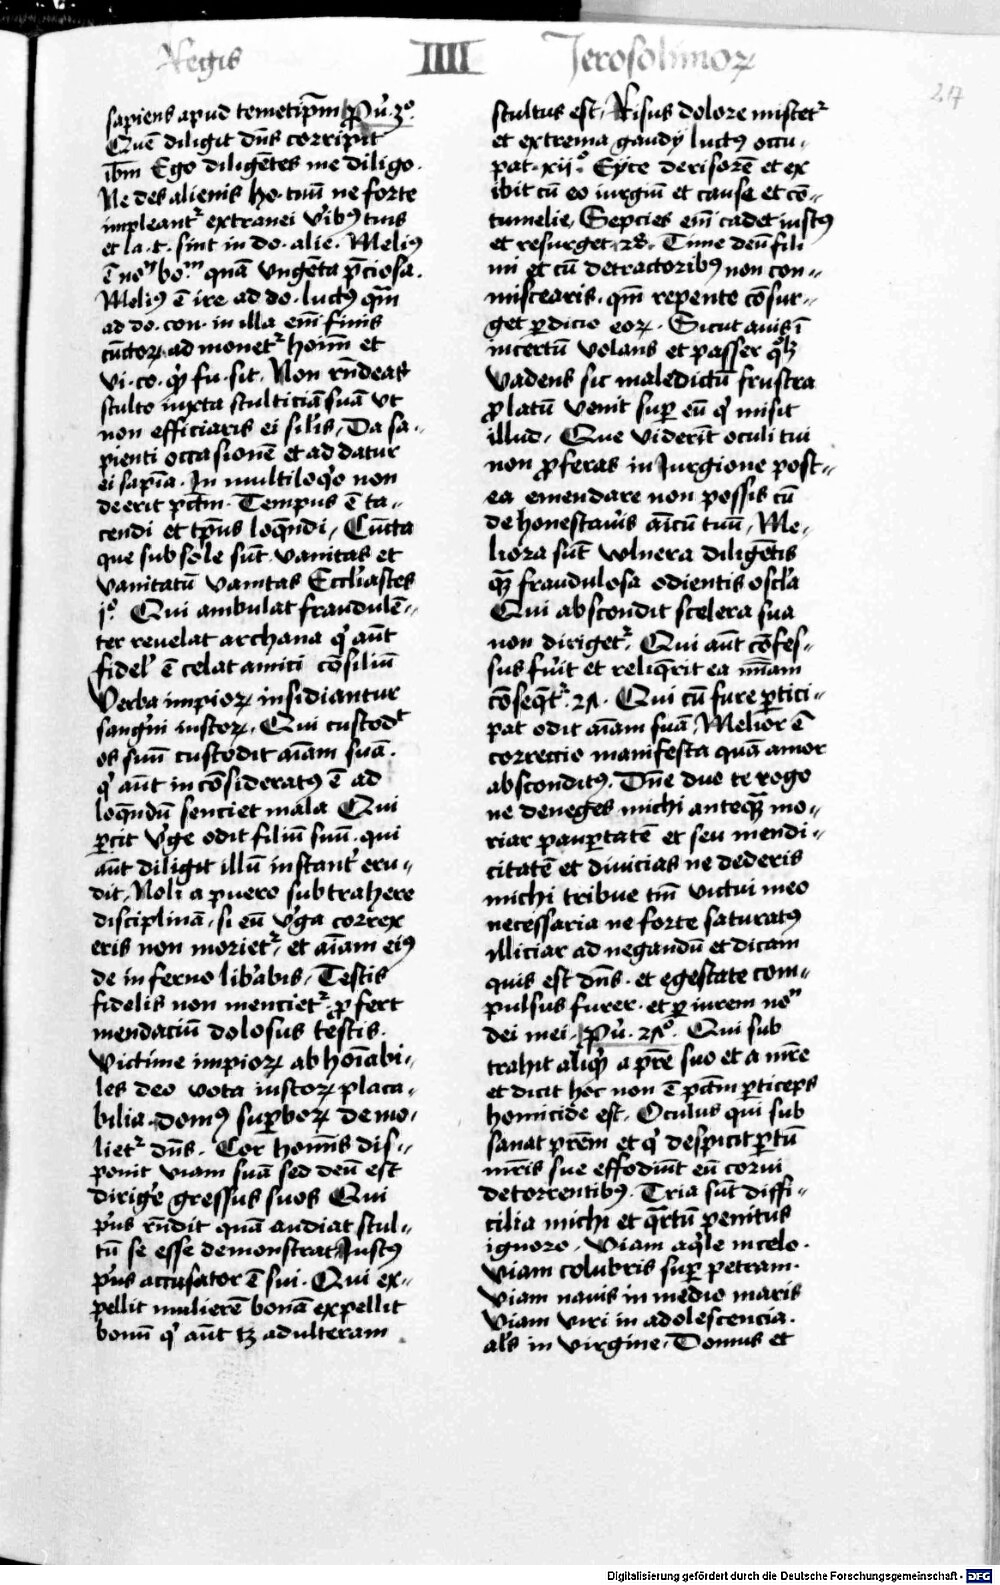 Regis IIII Jerosolimoꝝ
217
sapiens apud temetip̄m Pu͛. 3°.
Quē diligit dn̄s corripit
ib̄m Ego diligētes me diligo.
Ne des alienis ho. tuū ne forte
impleant᷑ extranei v̾ibꝰ tuis
et la. t. sint in do. alie. Meliꝰ
ē noᵐ boᵐ quā vngēta p̄ciosa.
Meliꝰ ē ire ad do. luctꝰ qm̄
ad do. con. in illa em̄ finis
cūctoꝝ ad monet᷑ hoīm et
vi. co. qͥ fu. sit. Non rn̄deas
stulto iuxta stulticiā suā vt
non efficiaris ei sil̄is, Da sa-
pienti occasionē et addatur
ei sapīa. In multiloqͦ non
deerit pc̄tm. Tempus ē ta-
cendi et tp̄us loq̄ndi, Cūcta
que sub sole sūt. vanitas et
vanitatū vanitas Eccl̄iastes
j°. Qui ambulat fraudulē-
ter reuelat archana qͥ aūt
fidel̄ ē celat amici cōsiliū
Verba impioꝝ insidiantur
sang̾ni iustoꝝ, Qui custodᵗ
os suū custodit aīam suā.
qͥ aūt incōsideratꝰ ē ad
loq̄ndū senciet mala Qui
ꝑcit v̾ge odit filiū suū. qui
aūt diligit illū instant̾ eru-
dit, Noli a puero subtrahere
disciplinā, si eū v̾ga correx
eris non moriet᷑, et aīam eiꝰ
de inferno lib̾abis, Testis
fidelis non menciet᷑. ꝓfert
mendaciū dolosus testis.
Victime impioꝝ abhoīabi-
les deo vota iustoꝝ placa-
bilia. domꝰ suꝑboꝝ demo-
liet᷑ dn̄s. Cor homīs dis-
ponit viam suā sed deū est
dirig̾e gressus suos Qui
p̾us rn̄dit quā audiat stul-
tū se esse demonstrat Iustꝰ
p̾us accusator ē sui. Qui ex-
pellit mulierē bonā expellit
bonū qͥ aūt tꝫ adulteram
stultus est, Risus dolore miscet᷑
et extrema gaudij luctꝰ occu-
pat. xij°. Eyce derisorē et ex
ibit cū eo iurgiū et cause et cō-
tumelie, Sepcies em̄ cadet iustꝰ
et resurget. 2ꝝ. Time deū fili
mi et cū detractoribꝰ non con-
miscearis. qm̄ repente cōsur-
get ꝑdicio eoꝝ. Sicut auis ī
incertū volans et passer qͦlꝫ
vadens sic maledictū frustra
ꝓlatū venit suꝑ eū qͥ misit
illud, Que viderīt oculi tui
non ꝓferas in Jurgione post-
ea emendare non possis cū
dehonestau̾is aīcū tuū, Me-
liora sūt vulnera diligētis
qͣꝫ fraudulosa odientis oscl̄a
Qui abscondit scelera sua
non diriget᷑. Qui aūt cōfes-
sus fu̾it et reliq̄rit ea mīam
cōseqt᷑. 2ꝝ. Qui cū fure ꝑtici-
pat odit aīam suā, Melior ē
correctio manifesta quā amor
absconditꝰ. Dn̄e duo te rogo
ne deneges michi anteqͣꝫ mo-
riar pauꝑtatē et seu mendi-
citatē et diuicias ne dederis
michi tribue tm̄ victui meo
necessaria ne forte saturatꝰ
illiciar ad negandū et dicam
quis est dn̄s. et egestate com-
pulsus furer. et ꝑiurem noᵐ
dei mei. Pu͛. 2ꝝ°. Qui sub
trahit aliqͥ a p̄re suo et a mr̄e
et dicit hoc non ē pc̄tm ꝑticeps
homicide est, Oculus qui sub
sanat p̄rēm et qͥ despicit ꝑtū
mr̄is sue effodiūt eū corui
detorrentibꝰ. Tria sūt diffi-
cilia michi et qͣrtū penitus
ignoro, Viam aqͥle in celo.
Viam colubris suꝑ petram.
Viam nauis in medio maris
Viam viri in adolescencia.
al̄s in virgine, Domus et
Digitalisierung gefördert durch die Deutsche Forschungsgemeinschaft - DFG